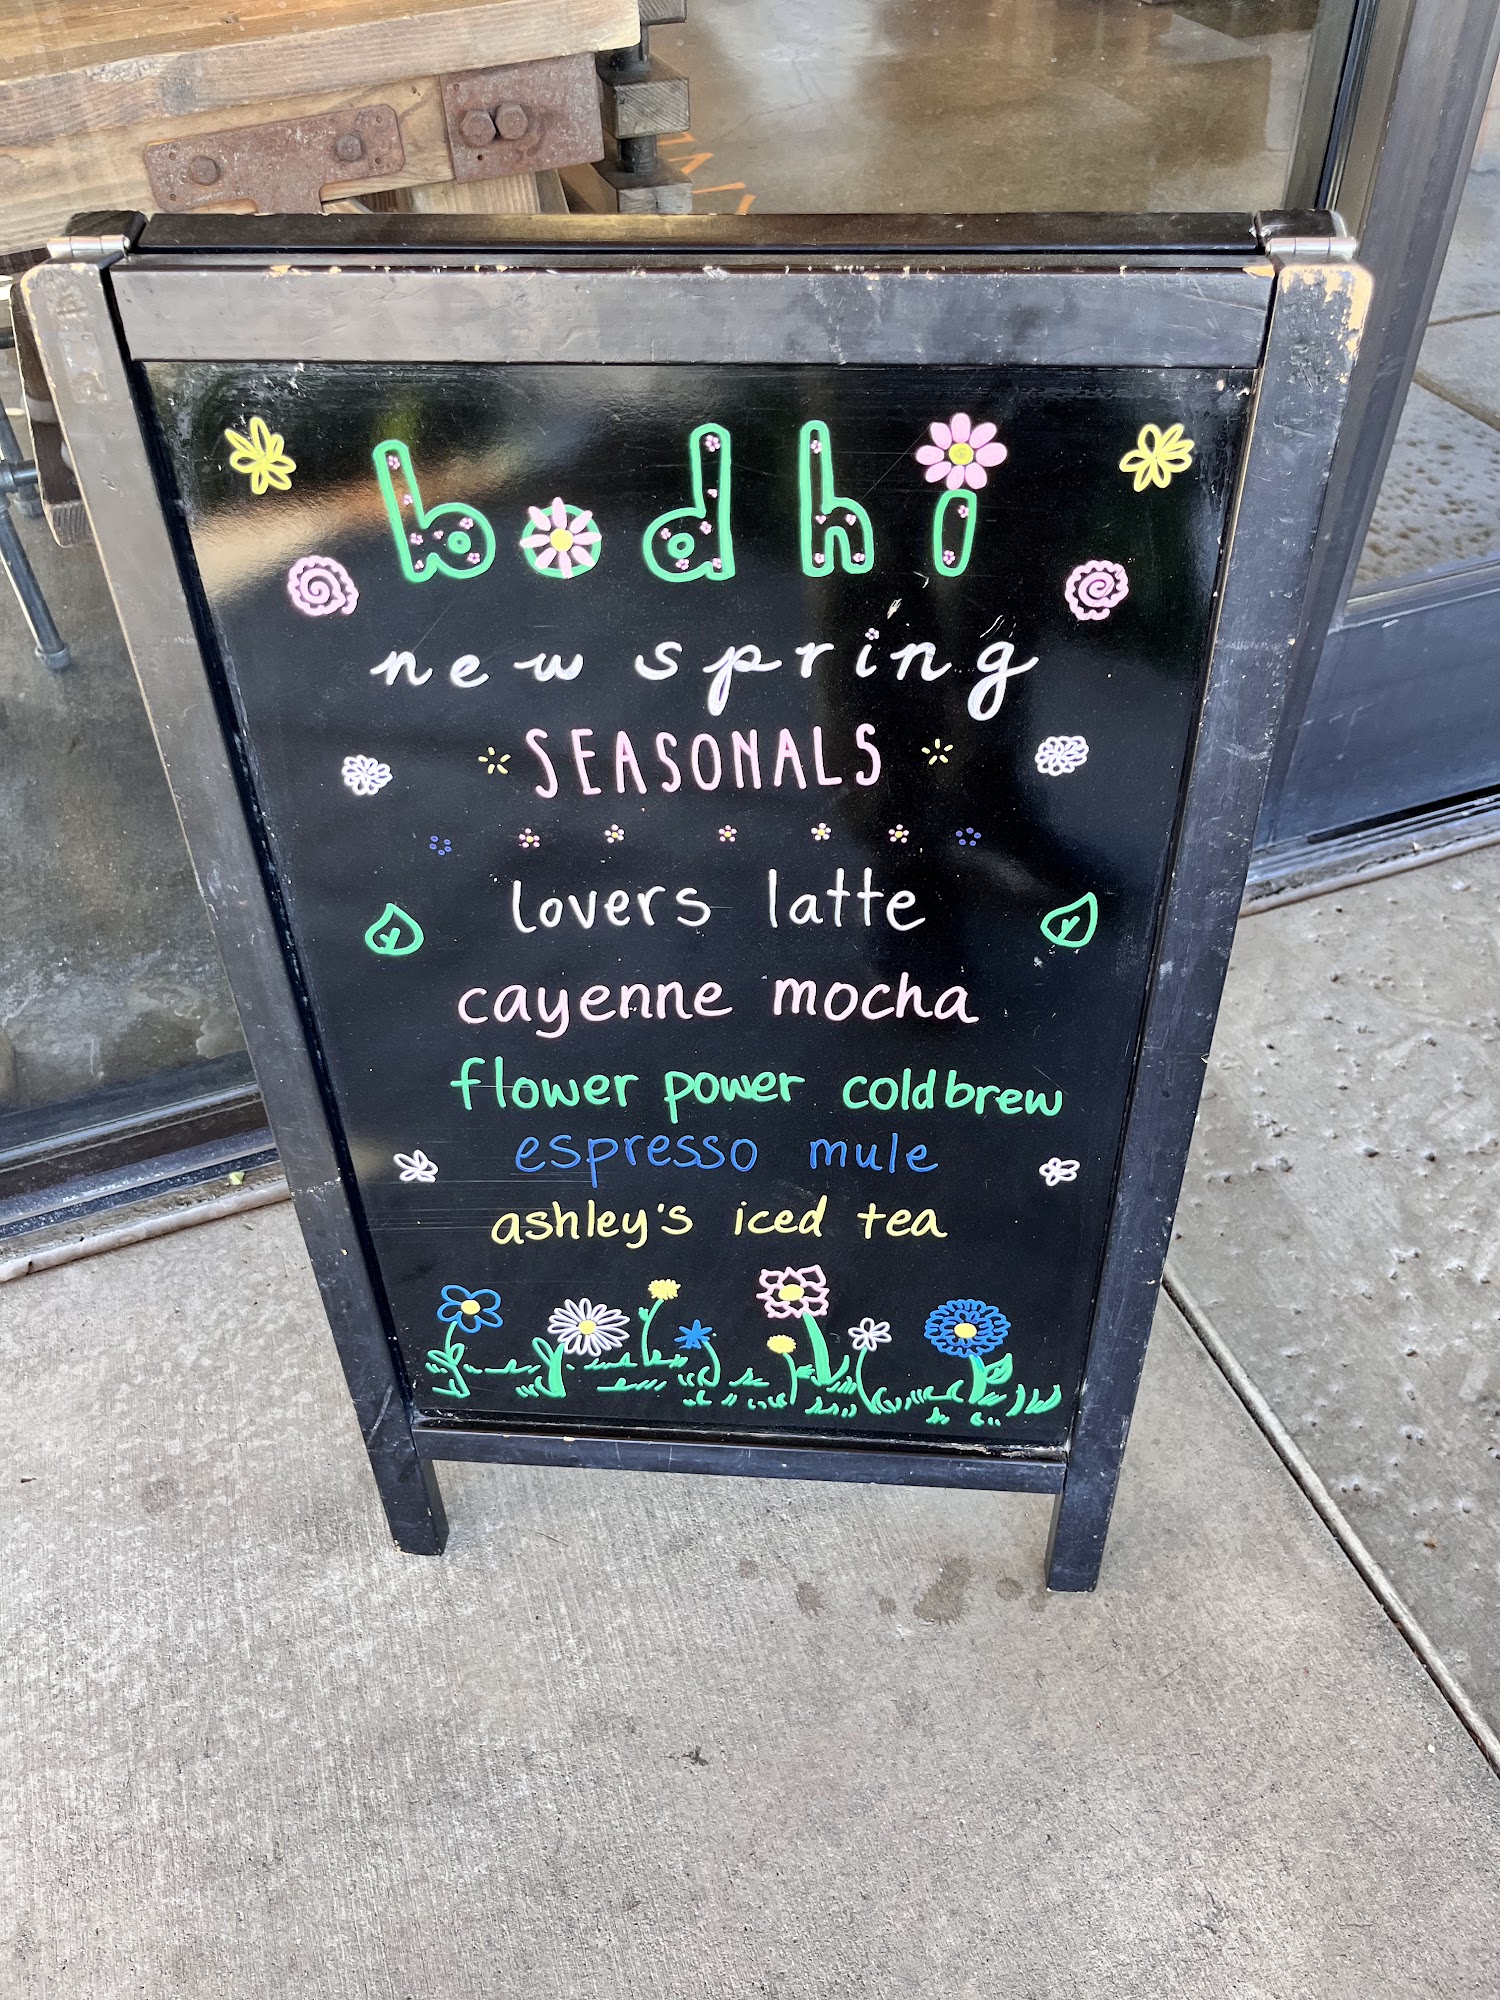 bodhi
new spring
SEASONALS
lovers latte
cayenne mocha
flower power coldbrew
espresso mule
ashley's iced tea